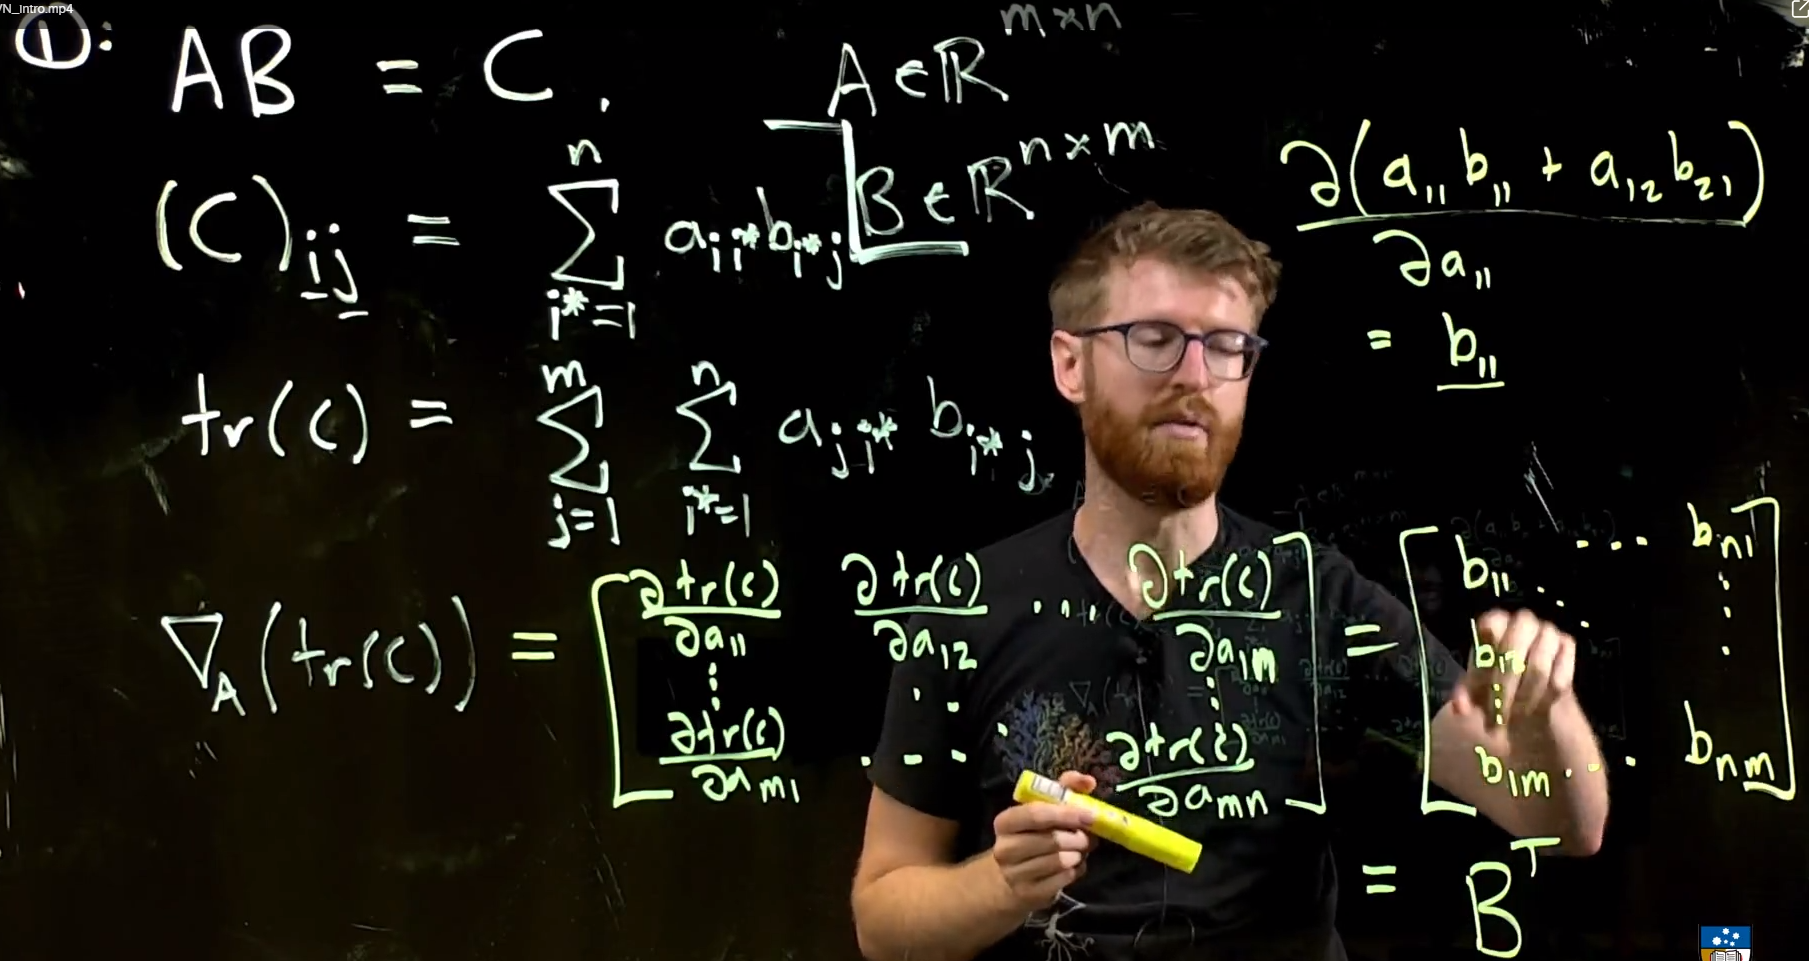 VN_Intro.mp4
①: AB = C . A ∈ ℝ^{m×n}
B ∈ ℝ^{n×m}
(C)_{ij} = ∑_{i*=1}^{n} a_{ii*} b_{i*j}
∂(a_{11} b_{11} + a_{12} b_{21})
∂a_{11}
= b_{11}
tr(C) = ∑_{j=1}^{m} ∑_{i*=1}^{n} a_{ji*} b_{i*j}
∇_A (tr(C)) = [ ∂tr(C)/∂a_{11} ∂tr(C)/∂a_{12} ... ∂tr(C)/∂a_{1m} = [ b_{11} ... b_{n1}
⋮ ⋱ ⋮ b_{12} ⋮
∂tr(C)/∂a_{m1} ... ∂tr(C)/∂a_{mn} ] b_{1m} ... b_{nm} ]
= B^T